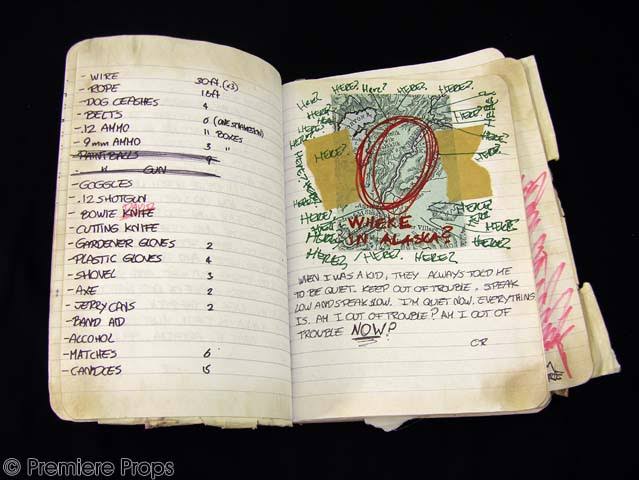 - WIRE 30ft. (x3)
- ROPE 18ft
- DOG LEASHES 4
- BELTS 0
- .12 AMMO 11 BOXES
- 9mm AMMO 3 "
- PAINT BALLS 9
- " GUN
- GOGGLES
- .12 SHOTGUN
- BOWIE KNIFE
- CUTTING KNIFE
- GARDENER GLOVES 2
- PLASTIC GLOVES 4
- SHOVEL 3
- AXE 2
- JERRYCANS 2
- BAND AID
- ALCOHOL
- MATCHES 6
- CANDLES 15
HERE? HERE? HERE? HERE? HERE?
HERE?
HERE?
WHERE
IN ALASKA?
HERE? HERE? HERE? HERE?
WHEN I WAS A KID, THEY ALWAYS TOLD ME
TO BE QUIET. KEEP OUT OF TROUBLE. SPEAK
LOW AND SPEAK SLOW. I'M QUIET NOW. EVERYTHING
IS. AM I OUT OF TROUBLE? AM I OUT OF
TROUBLE NOW?
CR
© Premiere Props